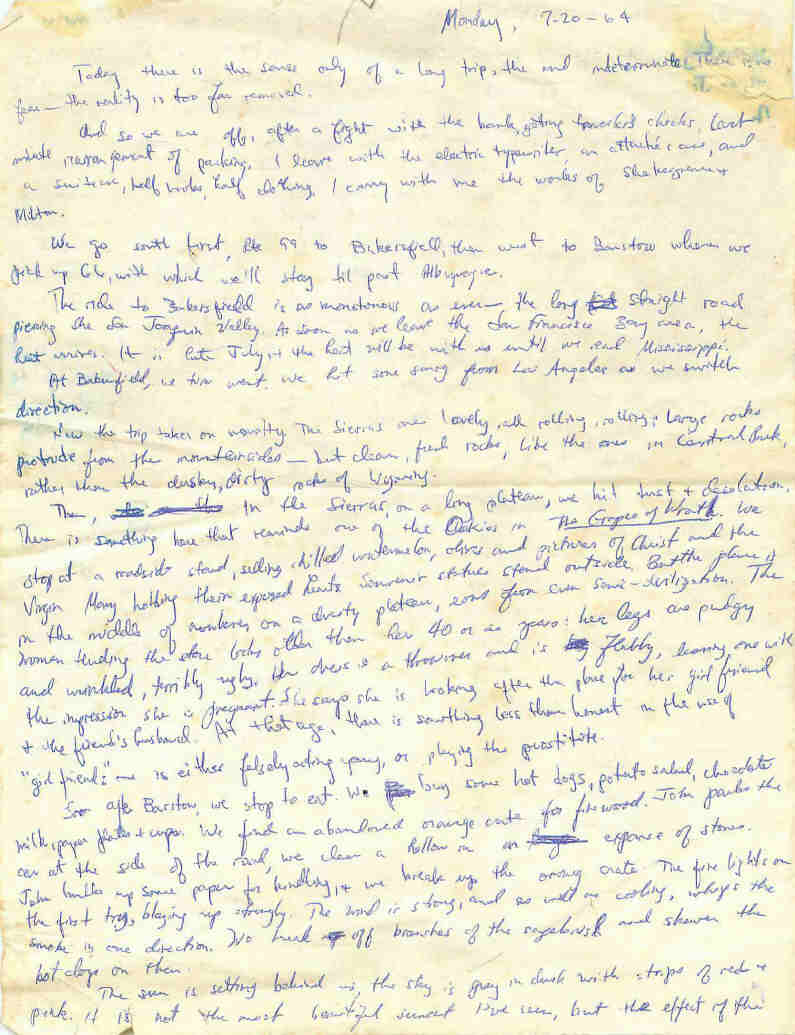 Monday, 7-20-64
Today there is the sense only of a long trip, the end indeterminate. There is no
fear — the reality is too far removed.
And so we are off, after a fight with the bank, getting traveler's checks, last
minute rearrangement of packing. I leave with the electric typewriter, an attache case, and
a suitcase, half books, half clothing. I carry with me the works of Shakespeare +
Milton.
We go south first, Rte 99 to Bakersfield, then west to Barstow where we
pick up 66, with which we'll stay til past Albuquerque.
The ride to Bakersfield is as monotonous as ever — the long straight road
piercing the San Joaquin Valley. As soon as we leave the San Francisco Bay area, the
heat arrives. It is late July, + the heat will be with us until we reach Mississippi.
At Bakersfield, we turn west. We hit some smog from Los Angeles as we switch
direction.
Now the trip takes on novelty. The Sierras are lovely, all rolling, rolling; large rocks
protrude from the mountainsides — but clean, fresh rocks, like the ones in Central Park,
rather than the dusky, dirty rocks of Wyoming.
Then, in the Sierras, on a long plateau, we hit dust + desolation.
There is something here that reminds one of the Oakies in The Grapes of Wrath. We
stop at a roadside stand, selling chilled watermelon, olives and pictures of Christ and the
Virgin Mary holding their exposed hearts. Souvenir statues stand outside. But the place is
in the middle of nowhere, on a dusty plateau, eons from even semi-civilization. The
woman tending the store looks older than her 40 or so years: her legs are pudgy
and wrinkled, terribly ugly. Her dress is a throwover and is flabby, leaving one with
the impression she is pregnant. She says she is looking after the place for her girl friend
+ the friend's husband. At that age, there is something less than honest in the use of
"girl friend:" one is either falsely acting young, or playing the prostitute.
Soon after Barstow, we stop to eat. We buy some hot dogs, potato salad, chocolate
milk, paper plates + cups. We find an abandoned orange crate for firewood. John parks the
car at the side of the road, we clear a hollow in an expanse of stones.
John bundles up some paper for kindling, + we break up the orange crate. The fire lights on
the first try, blazing up strongly. The wind is strong, and as well as cooling, whips the
smoke in one direction. We break off branches of the sagebrush and skewer the
hot dogs on them.
The sun is setting behind us, the sky is gray in dusk with strips of red +
pink. It is not the most beautiful sunset I've seen, but the effect of the